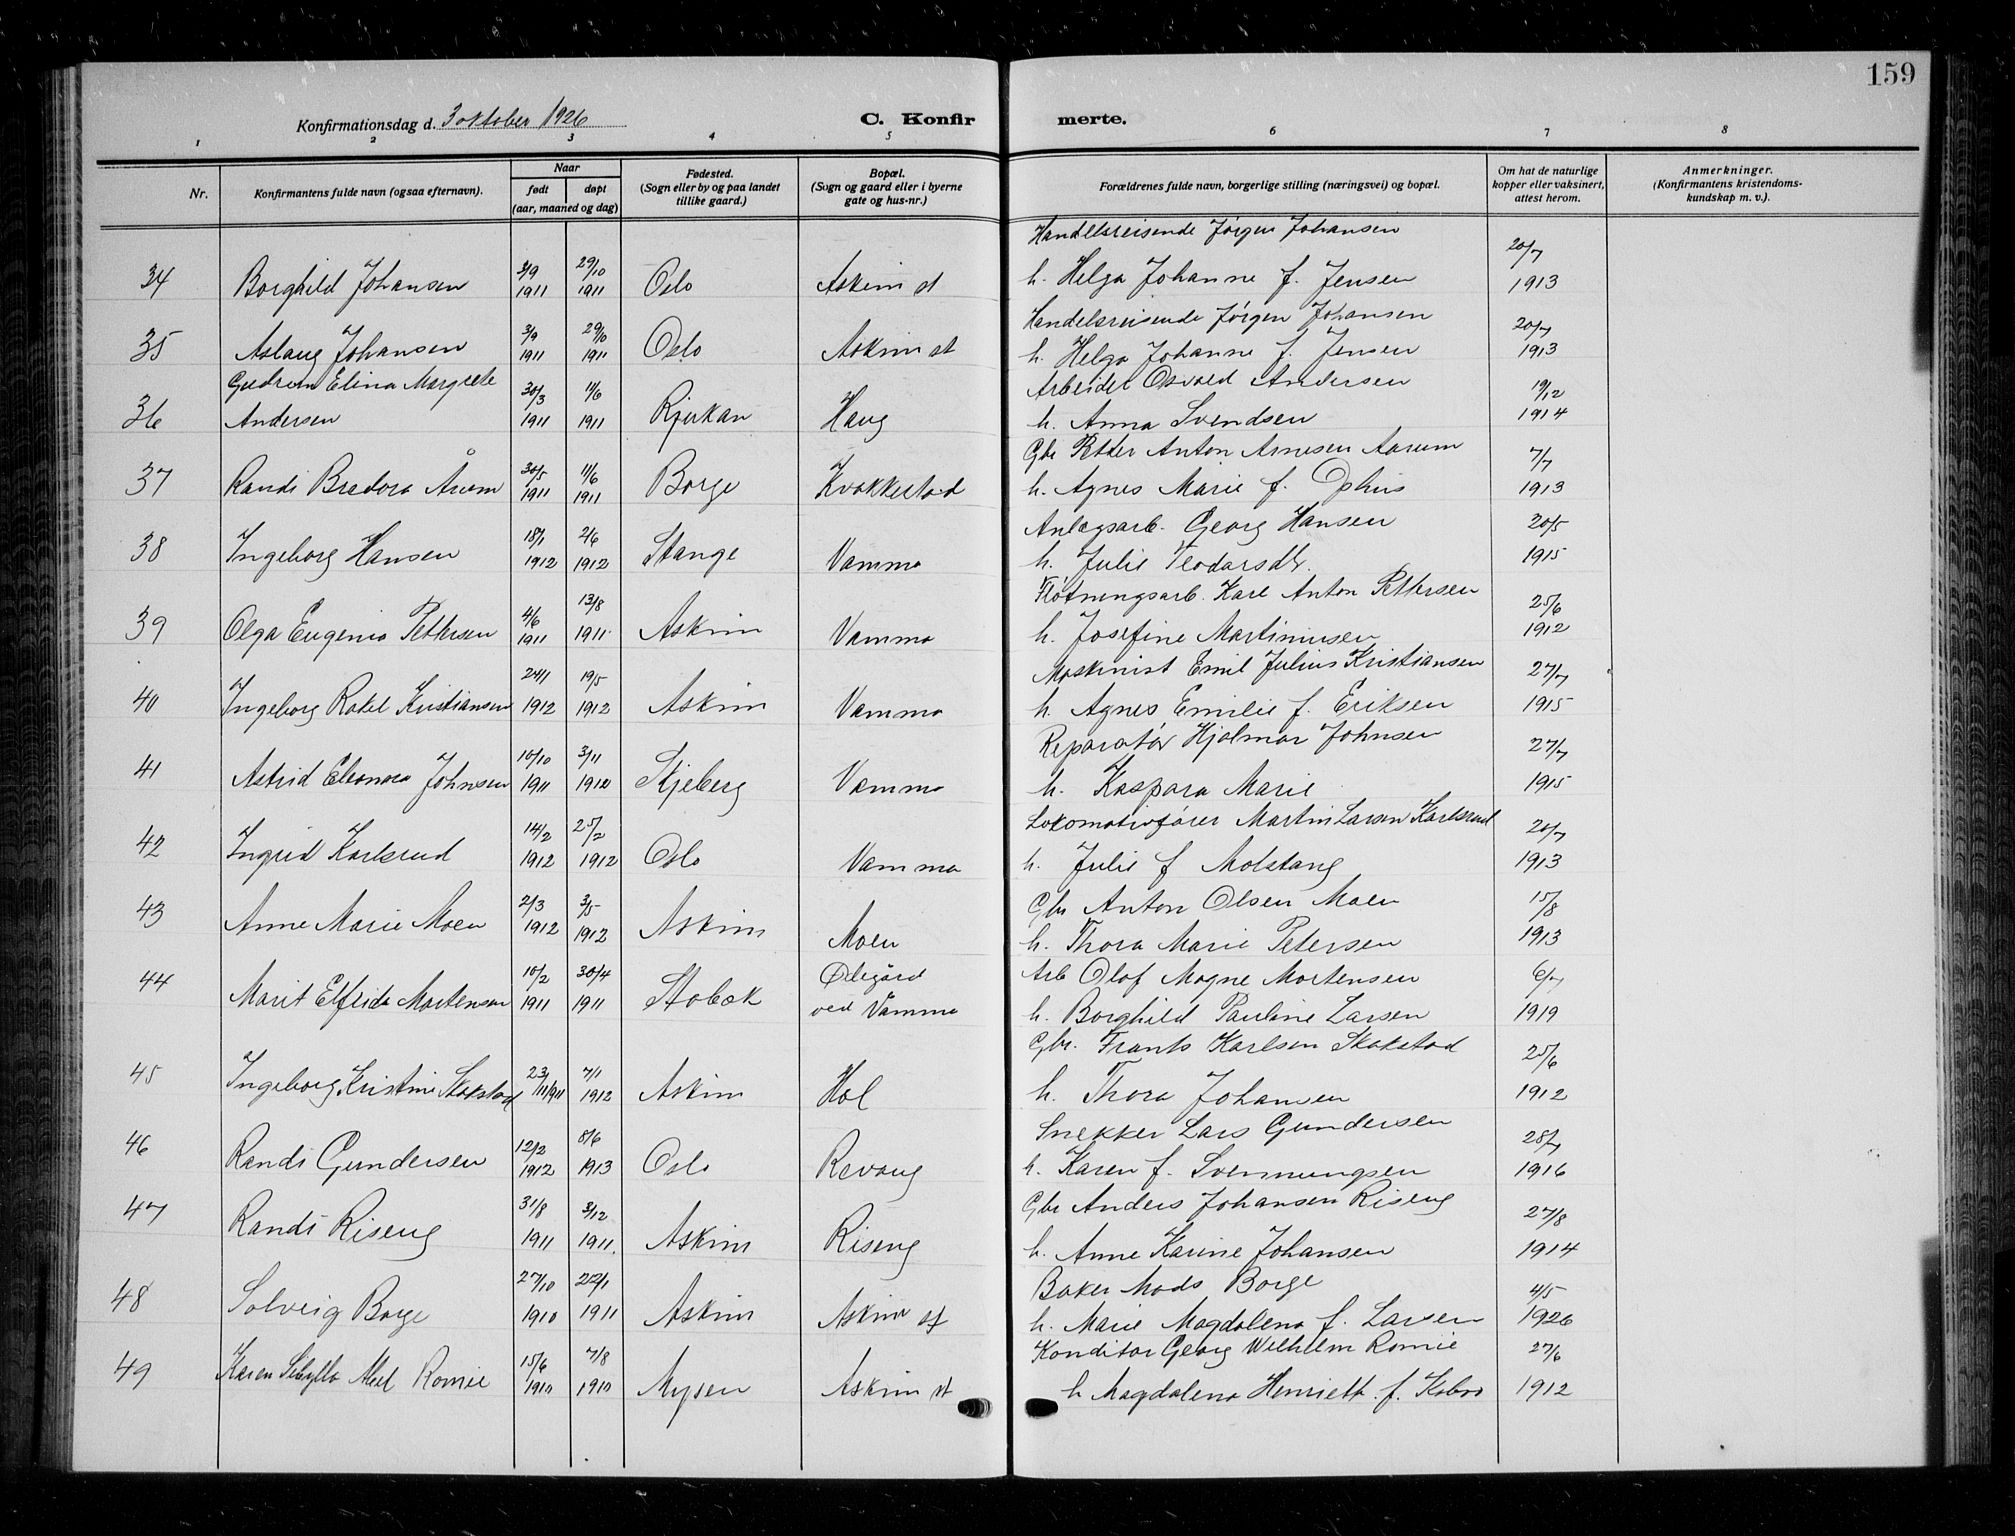 159
Konfirmationsdag d. 3 oktober 1926 C. Konfirmerte.
1 2 3 4 5 6 7 8
Nr. Konfirmantens fulde navn (ogsaa efternavn). Naar født døpt (aar, maaned og dag) Fødested. (Sogn eller by og paa landet tillike gaard.) Bopæl. (Sogn og gaard eller i byerne gate og hus-nr.) Forældrenes fulde navn, borgerlige stilling (næringsvei) og bopæl. Om hat de naturlige kopper eller vaksinert, attest herom. Anmerkninger. (Konfirmantens kristendoms-kundskap m. v.).
Handelsreisende Jørgen Johansen
34 Borghild Johansen 3/9 1911 29/10 1911 Oslo Askim st h. Helga Johanne f. Jensen 20/7 1913
Handelsreisende Jørgen Johansen
35 Aslaug Johansen 3/9 1911 29/10 1911 Oslo Askim st h. Helga Johanne f. Jensen 20/7 1913
Gudrun Elina Margrete Arbeider Osvald Andersen
36 Andersen 30/3 1911 11/6 1911 Rjukan Haug h. Anna Svendsen 19/12 1914
Gbr Petter Anton Arnesen Aarum
37 Randi Bredora Årum 30/5 1911 11/6 1911 Borge Kvakkestad h. Agnes Marie f. Ophus 7/7 1913
Anlægsarb. Georg Hansen
38 Ingeborg Hansen 18/1 1912 2/6 1912 Stange Vamma h. Julie Teodorsdtr. 20/5 1915
Fløtningsarb. Karl Anton Pettersen
39 Olga Eugenia Pettersen 4/6 1911 13/8 1911. Askim Vamma h. Josefine Martinusen 25/6 1912
Maskinist Emil Julius Kristiansen
40 Ingeborg Rakel Kristiansen 24/1 1912 19/5 1912 Askim Vamma h. Agnes Emilie f. Eriksen 27/7 1915
Reparatør Hjalmar Johnsen
41 Astrid Eleonora Johnsen 10/10 1911 3/11 1912 Skjeberg Vamma h. Kaspara Marie 27/7 1915
Lokomotivfører Martin Larsen Karlsrud
42 Ingrid Karlsrud 14/2 1912 25/2 1912 Oslo Vamma h. Julie f Molstang 20/7 1913
Gbr Anton Olsen Moen
43 Anne Marie Moen 2/3 1912 3/5 1912 Askim Moen h. Thora Marie Petersen 15/8 1913
Arb Olaf Magne Mortensen
44 Marit Elfrida Mortensen 10/2 1911 30/4 1911 Stabæk Ødegård ved Vamma h. Borghild Pauline Larsen 6/7 1919
Gbr. Frants Karlsen Skakstad
45 Ingeborg Kristine Skakstad 23/11 1911 7/1 1912 Askim Hol h. Thora Johansen 25/6 1912
Snekker Lars Gundersen
46 Randi Gundersen 12/2 1912 8/6 1913 Oslo Revaug h. Karen f. Svennungsen 28/7 1916
Gbr Anders Johansen Riseng
47 Randi Riseng 31/8 1911 3/12 1911. Askim Riseng h. Anne Karine Johansen 27/8 1914
Baker Mads Borge
48 Solveig Borge 27/10 1910 22/1 1911 Askim Askim st h. Marie Magdalena f. Larsen 4/5 1926
Konditor Georg Wilhelm Romie
49 Karen Sibylla Abel Romie 15/6 1910 7/8 1910 Mysen Askim st h Magdalena Henriett f. 27/6 1912